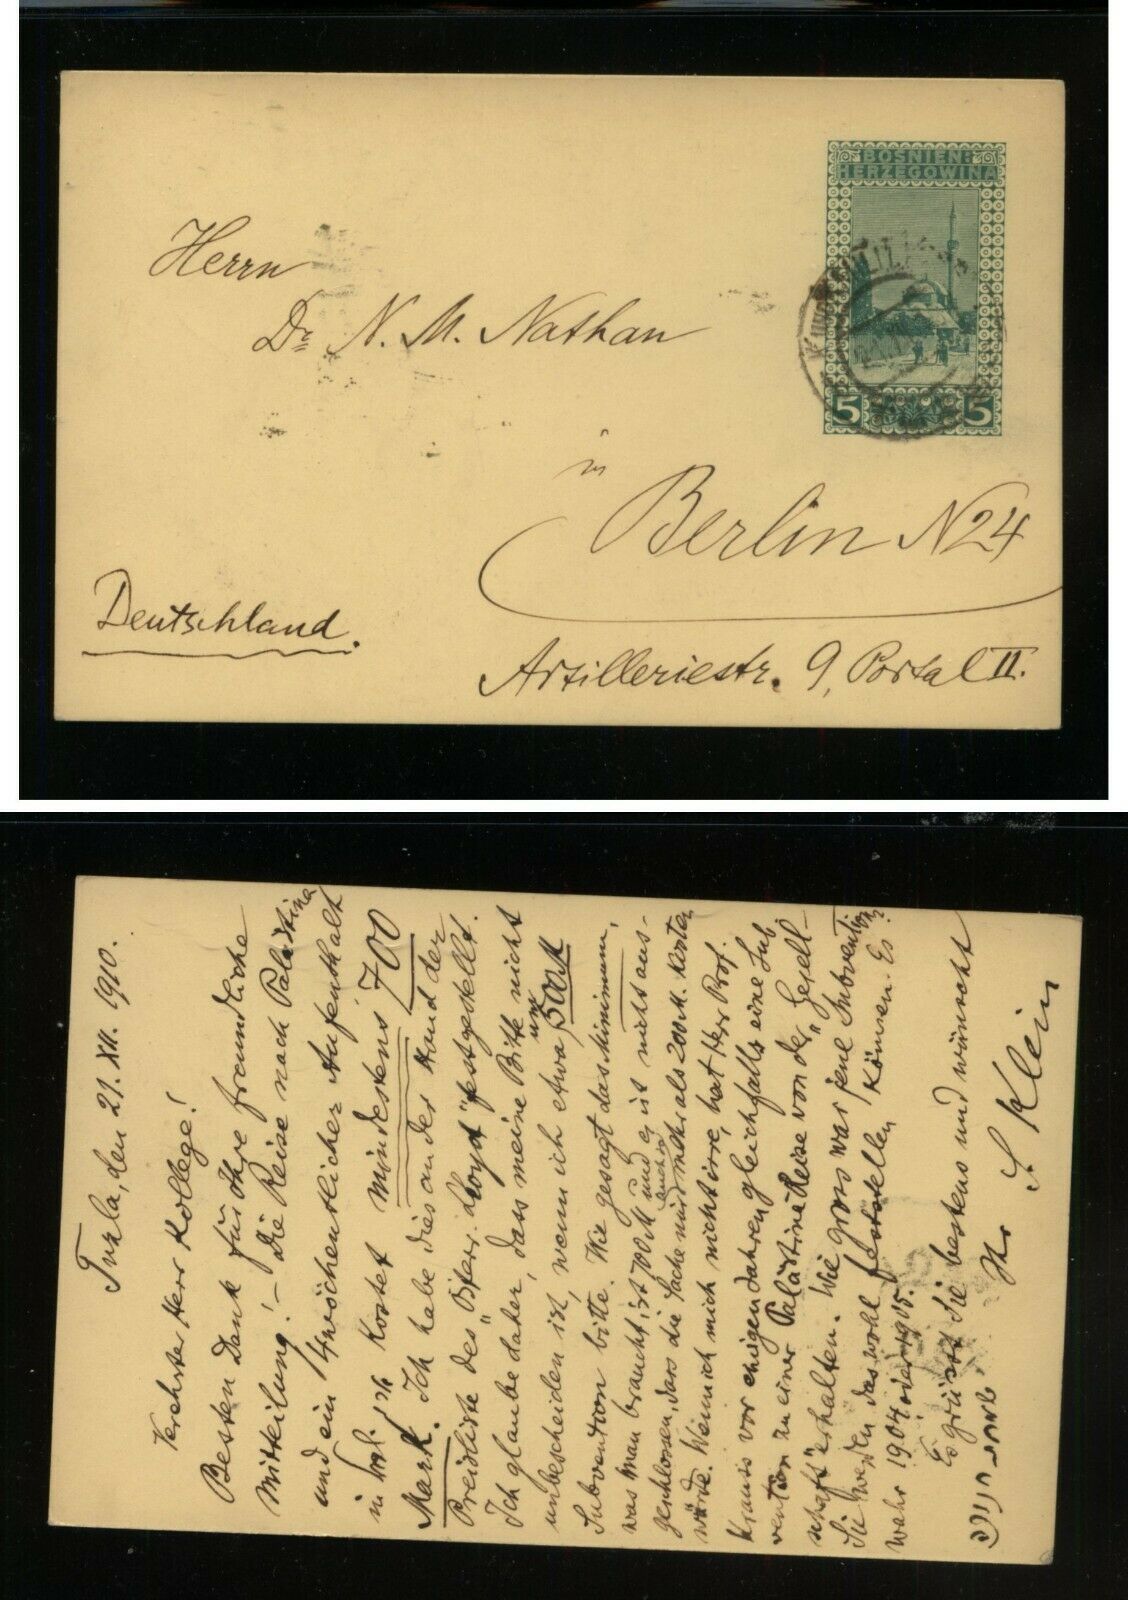 BOSNIEN-
HERZEGOWINA
5 5
Herrn
Dr. N. M. Nathan
in
Berlin N24
Deutschland.
Artilleriestr. 9, Portal II.
Tuzla, den 21. XII. 1910.
Verehrter Herr Kollege!
Besten Dank für Ihre freundliche
Mitteilung! – Die Reise nach Palästina
und ein 4wöchentlicher Aufenthalt
in kostet mindestens 700
Mark. Ich habe dies an der Hand der
Preisliste des "Österr. Lloyd" festgestellt.
Ich glaube daher, dass meine Bitte nicht
unbescheiden ist, wenn ich etwa um 500 M
Subvention bitte. Wie gesagt das Minimum,
was man braucht, ist 700 M und es ist nicht aus-
geschlossen, dass die Sache auch mehr als 200 M. kosten
würde. Wenn ich mich nicht irre, hat Herr Prof.
Krauss vor einigen Jahren gleichfalls eine Sub
vention zu einer Palästina Reise von der "Gesell-
schaft" erhalten. Wie gross war jene Subvention?
Sie werden das wohl feststellen können. Es
war 1904 oder 1905.
Es grüsst Sie bestens und wünscht
Ihr S. Klein